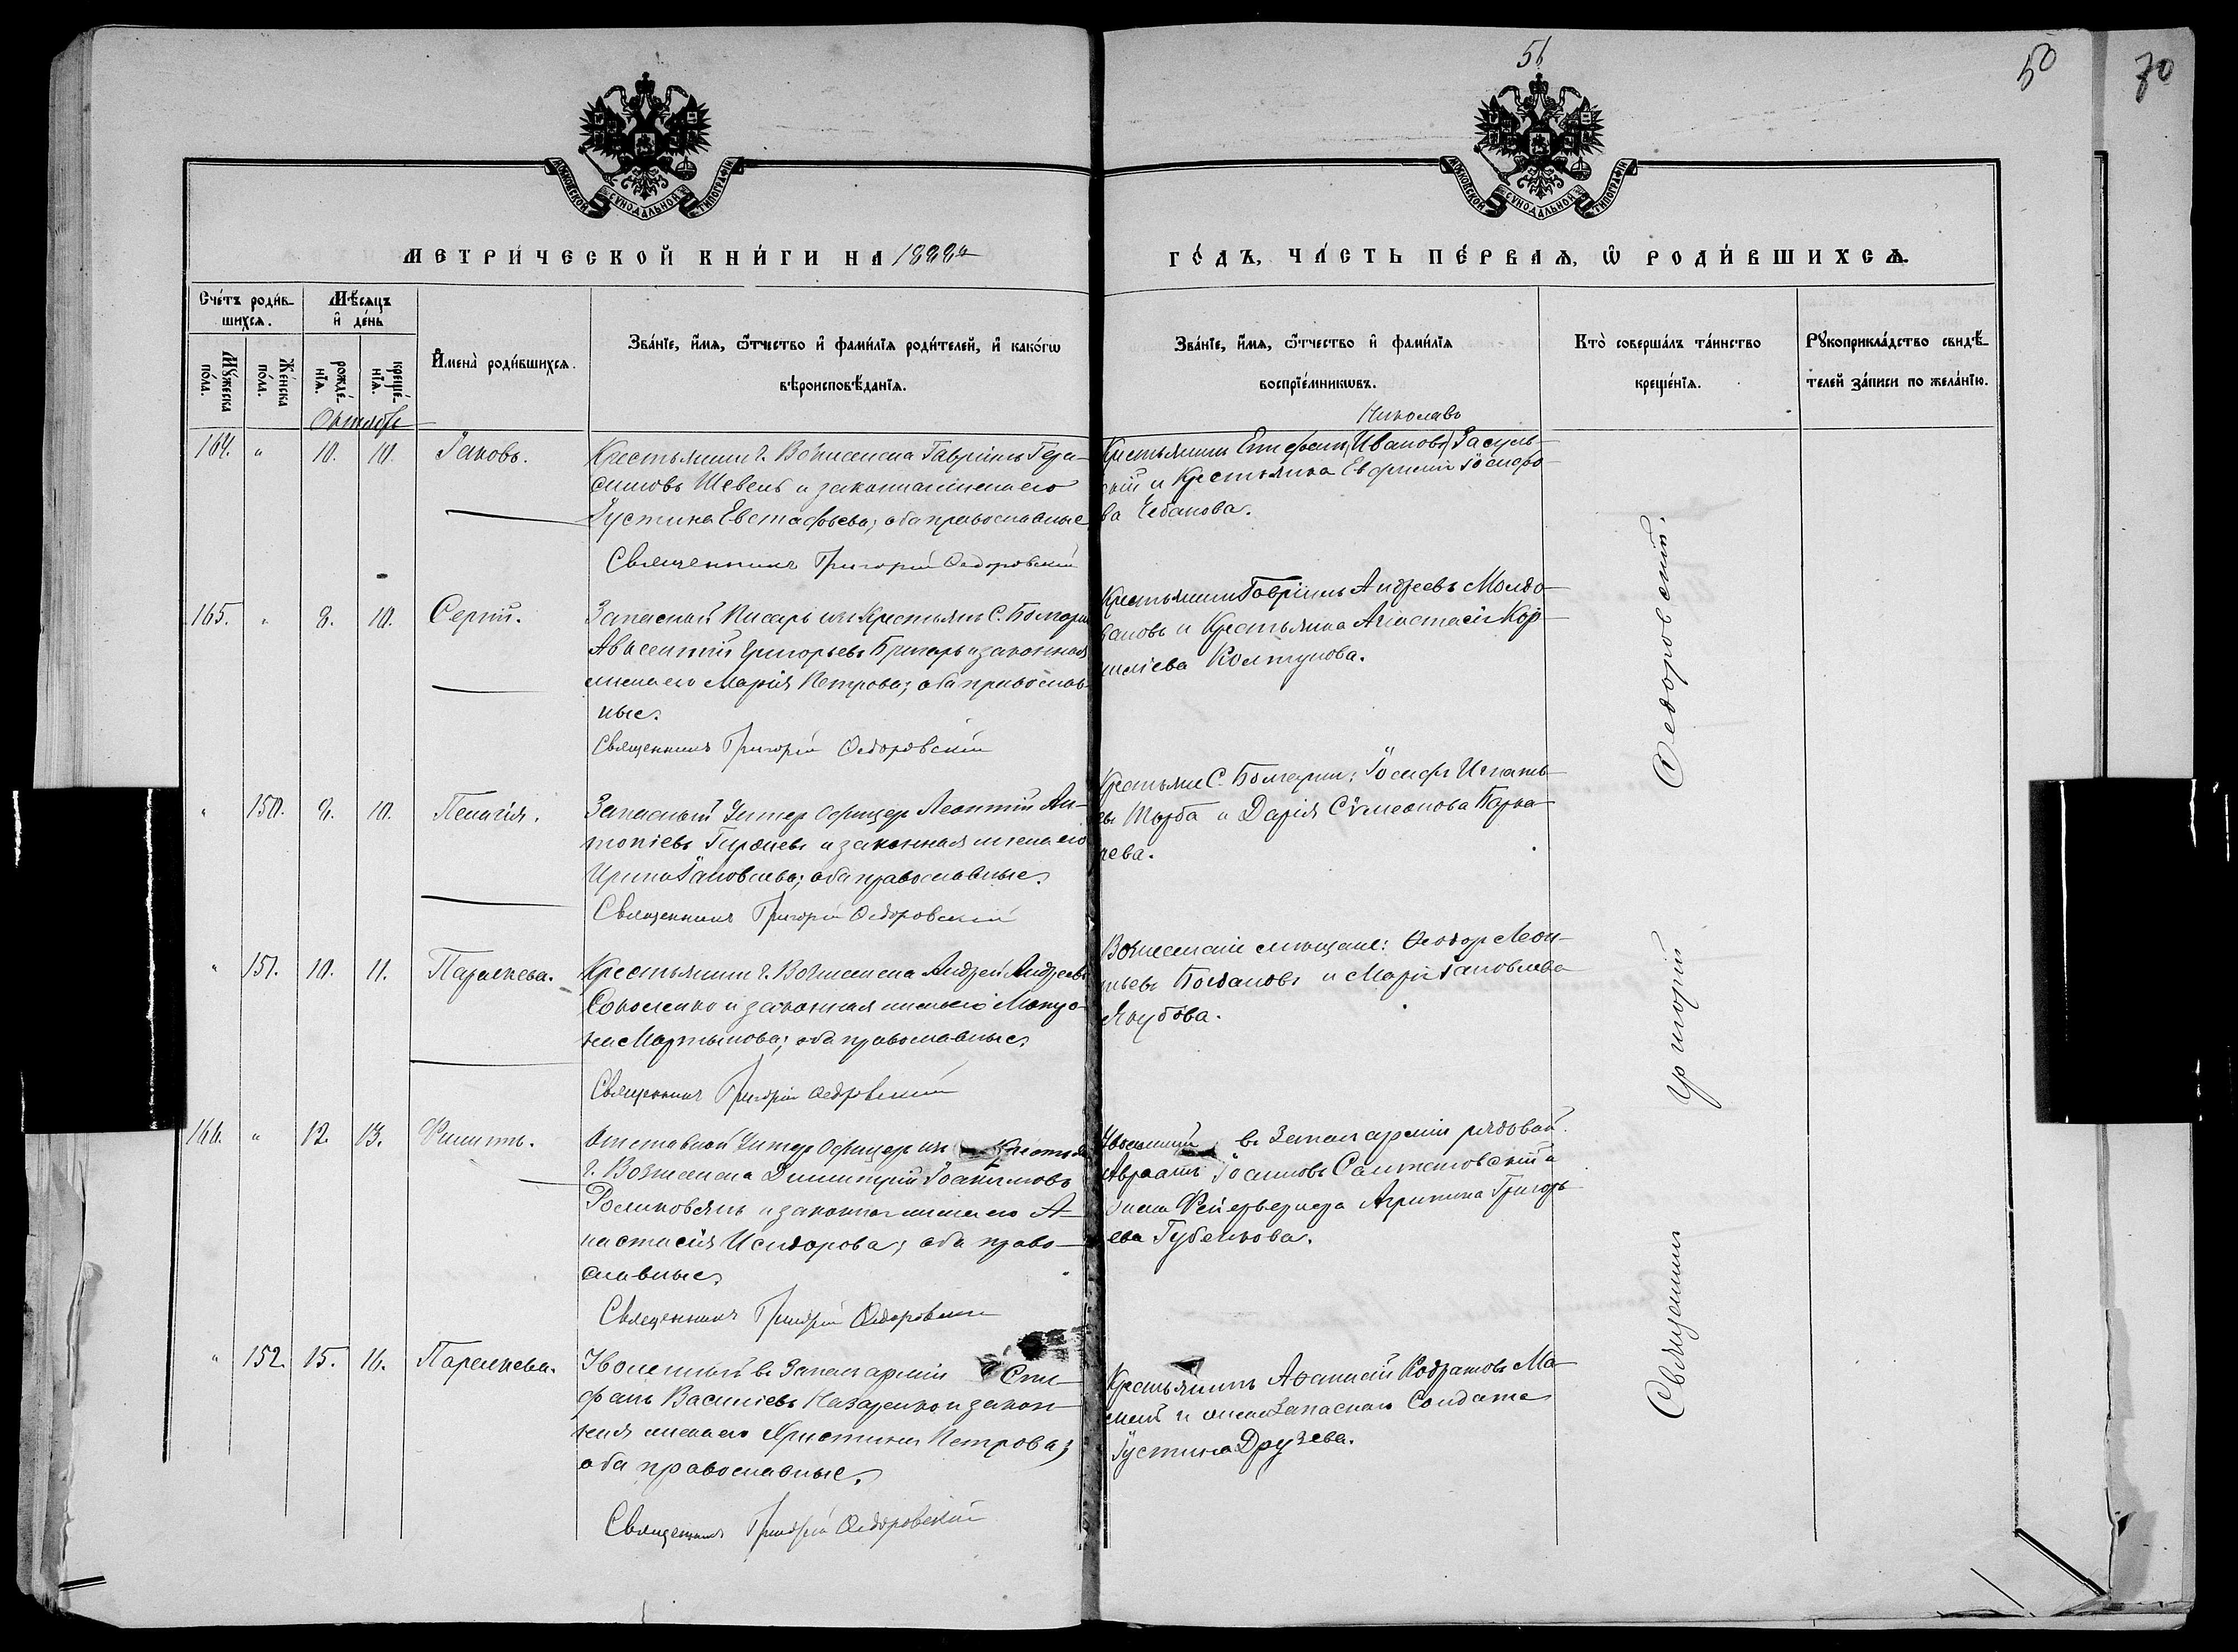 51
50
70
МОСКОВСКОЙ СѴНОДАЛЬНОЙ ТИПОГРАФІИ
МОСКОВСКОЙ СѴНОДАЛЬНОЙ ТИПОГРАФІИ
МЕТРИ́ЧЕСКОЙ КНИ́ГИ НА 1888й
ГО́ДЪ, ЧА́СТЬ ПЕ́РВАѦ, Ѡ҆ РОДИ́ВШИХСѦ.
Сче́тъ роди́в-
шихсѧ.
Мѣ́сяцъ
и҆ де́нь
Мꙋ́жеска
по́ла.
Же́нска
по́ла.
рожде́-
нїѧ.
креще́-
нїѧ.
И҆мена̀ роди́вшихсѧ.
Зва́нїе, и҆́мѧ, ѻ҆́тчество и҆ фами́лїѧ роди́телей, и҆ како́гѡ
вѣроисповѣ́данїѧ.
Зва́нїе, и҆́мѧ, ѻ҆́тчество и҆ фами́лїѧ
воспрїе́мникѡвъ.
Кто̀ соверша́лъ та́инство
креще́нїѧ.
Рꙋкоприкла́дство свидѣ́-
телей за́писи по жела́нїю.
Октябрь
164. " 10. 10. Іаковъ.
Крестьянинъ г. Вознесенска Гавріилъ Гера-
симовъ Шевель и законная жена его
Іустина Евстафьева; оба православные
Священникъ Григорій Ѳедоровскій
Николаевъ
Крестьянинъ Епифанъ Ивановъ Засуль-
скій и Крестьянка Евфимія Іосифо-
ва Чебанова.
165. " 8. 10. Сергій.
Запасный Писарь изъ Крестьянъ С. Болгарки
Авксентій Григорьевъ Бригарь и законная
жена его Марія Петрова; оба православ-
ные.
Священникъ Григорій Ѳедоровскій
Крестьянинъ Гавріилъ Андреевъ Молдо-
вановъ и Крестьянка Анастасія Кор-
ниліева Колтунова.
" 150. 8. 10. Пелагія.
Запасный Унтеръ Офицеръ Леонтій Ан-
тоніевъ и законная жена его
Ирина Іаковлева; оба православные.
Священникъ Григорій Ѳедоровскій
Крестьяне С. Болгарки: Іосифъ Игнать-
евъ Торба и Дарія Сѵмеонова
чева.
" 151. 10. 11. Параскева.
Крестьянинъ г. Вознесенска Андрей Андреевъ
Соколенко и законная жена его Матро-
на Мартынова; оба православные.
Священникъ Григорій Ѳедоровскій
Вознесенскіе мѣщане: Ѳеодоръ Леон-
тьевъ Богдановъ и Марія Іаковлева
Якубова.
166. " 12. 13. Филиппъ.
Отставной Унтеръ Офицеръ изъ Крестьянъ
г. Вознесенска Димитрій Іоакимовъ
и законная жена его А-
настасія Исидорова; оба право-
славные.
Священникъ Григорій Ѳедоровскій
Уволенный въ Запасъ арміи рядовой
Авраамъ Іоанновъ и
жена Фейерверкера Агрипина Григорь-
ева Губенкова.
" 152. 15. 16. Параскева.
Уволенный въ Запасъ арміи Сте-
фанъ Василіевъ Назаренко и закон-
ная жена его Христина Петрова;
оба православные.
Священникъ Григорій Ѳедоровскій
Крестьянинъ Аѳанасій Кодратовъ Ма-
и жена Запаснаго Солдата
Іустина Друзева.
Священникъ Григорій Ѳедоровскій.